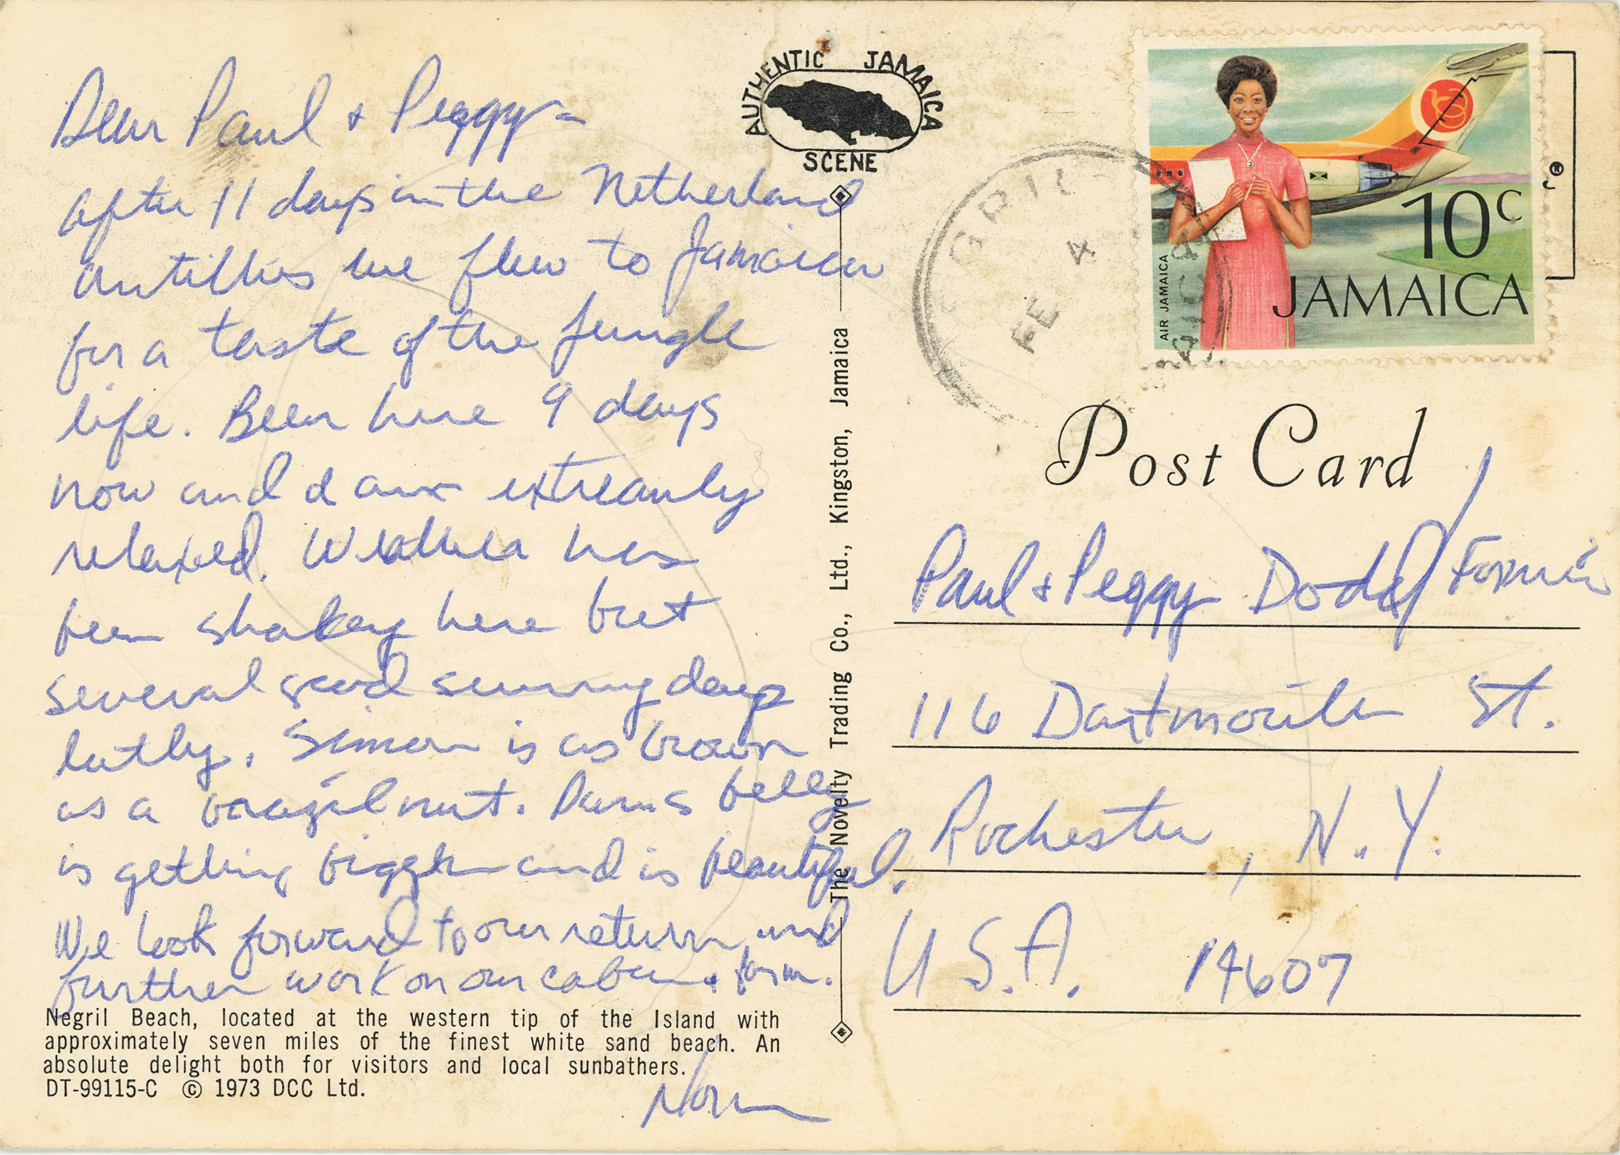 Dear Paul & Peggy -
after 11 days in the Netherland
antillies we flew to Jamaica
for a taste of the jungle
life. Been here 9 days
now and d am extreamly
relaxed. Weather has
been shakey here but
several good sunny days
latly. Simon is as brown
as a brazil nut. Dawns belly
is getting bigger and is beautiful.
We look forward to our return and
further work on our cabin & farm.
Norm
Negril Beach, located at the western tip of the Island with
approximately seven miles of the finest white sand beach. An
absolute delight both for visitors and local sunbathers.
DT-99115-C © 1973 DCC Ltd.
AUTHENTIC JAMAICA
SCENE
The Novelty Trading Co., Ltd., Kingston, Jamaica
FE 4
AIR JAMAICA
10c
JAMAICA
Post Card
Paul & Peggy Dodd/
116 Dartmouth St.
Rochester, N.Y.
U.S.A. 14607